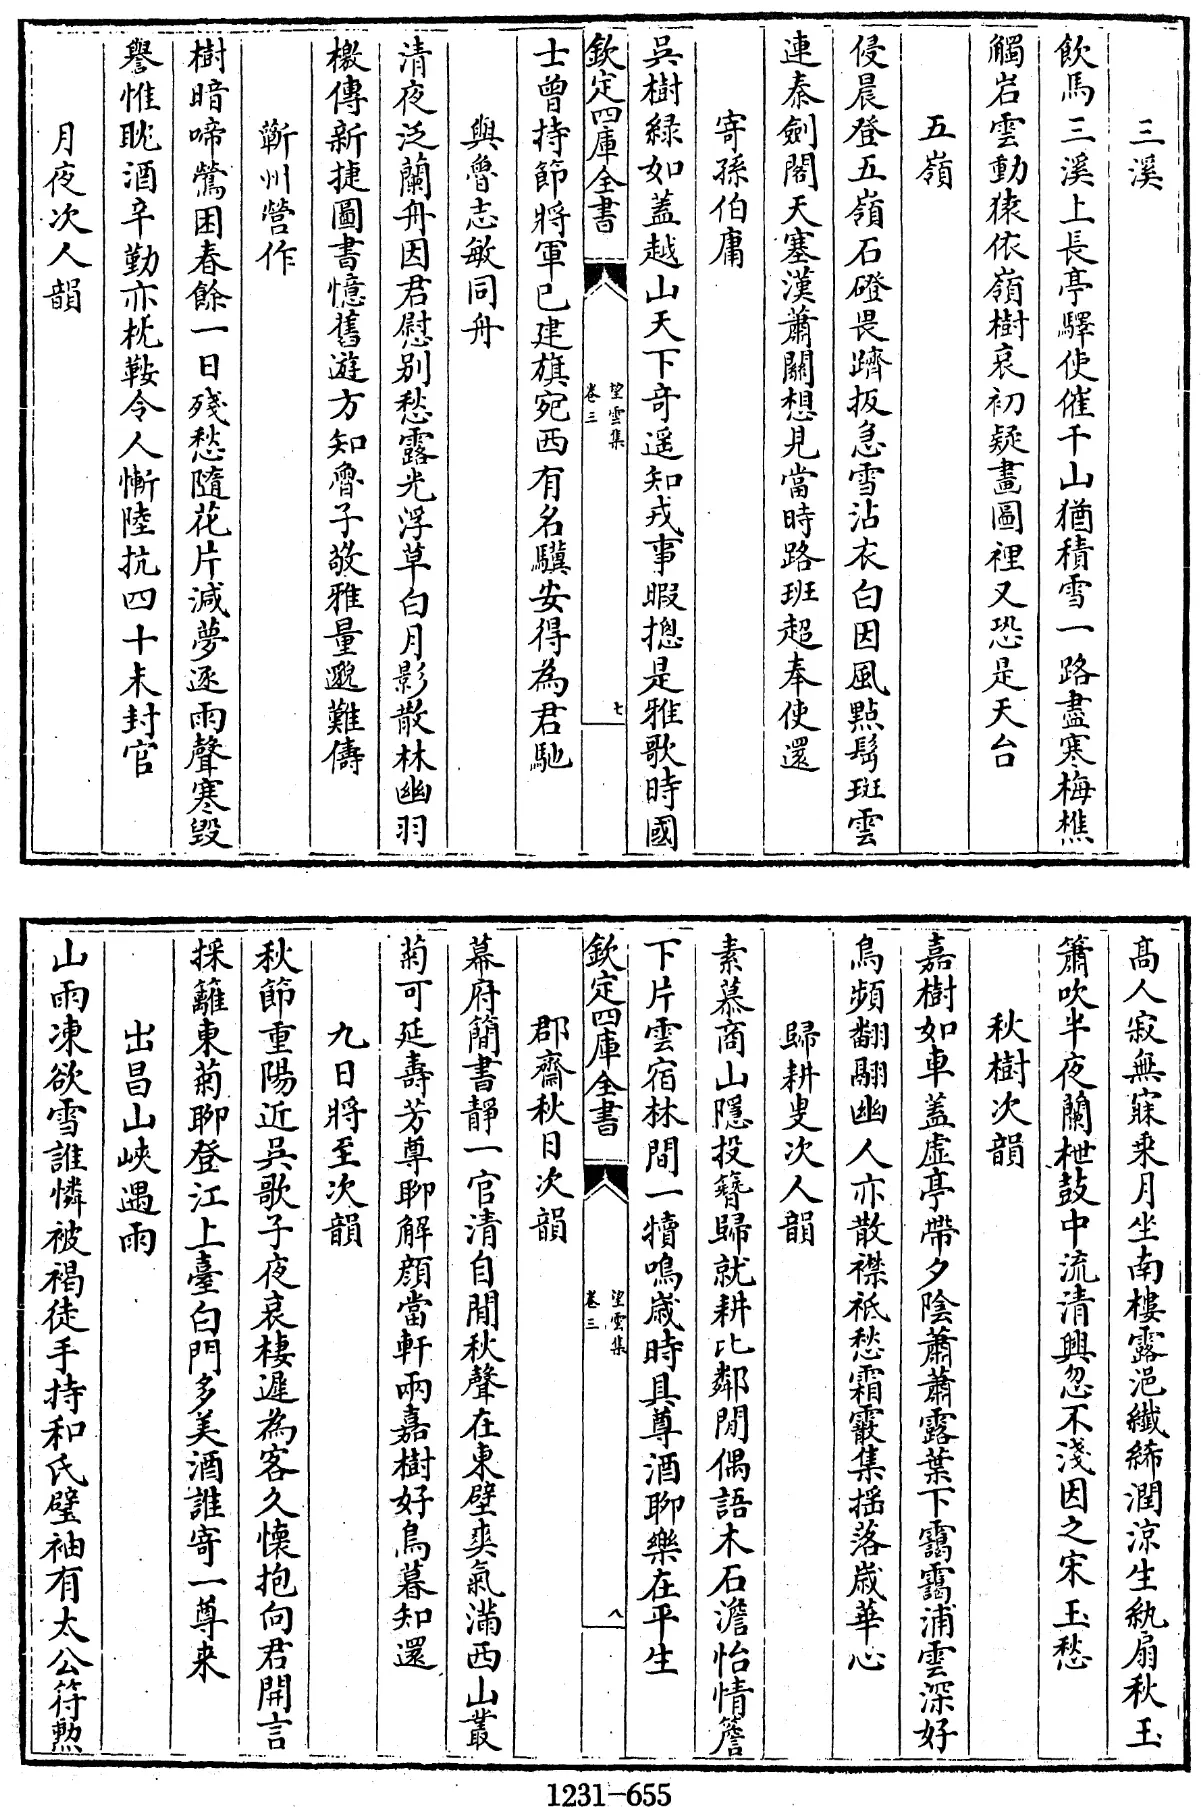 三溪
飲馬三溪上長亭驛使催千山猶積雪一路盡寒梅樵
觸岩雲動猿依嶺樹哀初疑畫圖裡又恐是天台
五嶺
侵晨登五嶺石磴畏躋扳急雪沾衣白因風點髩斑雲
連秦劍閣天塞漢蕭關想見當時路班超奉使還
寄孫伯庸
吳樹綠如蓋越山天下奇遥知戎事暇摠是雅歌時國
欽定四庫全書
望雲集
卷三
七
士曾持節將軍已建旗宛西有名驥安得為君馳
與魯志敏同舟
清夜泛蘭舟因君慰别愁露光浮草白月影散林幽羽
檄傳新捷圖書憶舊遊方知魯子敬雅量邈難儔
蘄州營作
樹暗啼鶯困春餘一日殘愁隨花片減夢逐雨聲寒毀
譽惟耽酒辛勤亦枕鞍令人慚陸抗四十未封官
月夜次人韻
髙人寂無寐乗月坐南樓露浥纖絺潤涼生紈扇秋玉
簫吹半夜蘭枻鼓中流清興忽不淺因之宋玉愁
秋樹次韻
嘉樹如車蓋虛亭帶夕陰蕭蕭露葉下靄靄浦雲深好
鳥頻翻翮幽人亦散襟祗愁霜霰集揺落歳華心
歸耕叟次人韻
素慕商山隱投簪歸就耕比鄰閒偶語木石澹怡情簷
下片雲宿林間一犢鳴歳時具尊酒聊樂在平生
欽定四庫全書
望雲集
卷三
八
郡齋秋日次韻
幕府簡書靜一官清自閒秋聲在東壁爽氣滿西山叢
菊可延壽芳尊聊解顔當軒兩嘉樹好鳥暮知還
九日將至次韻
秋節重陽近吳歌子夜哀棲遲為客久懷抱向君開言
採籬東菊聊登江上臺白門多美酒誰寄一尊来
出昌山峽遇雨
山雨凍欲雪誰憐被褐徒手持和氏璧袖有太公符勲
1231-655